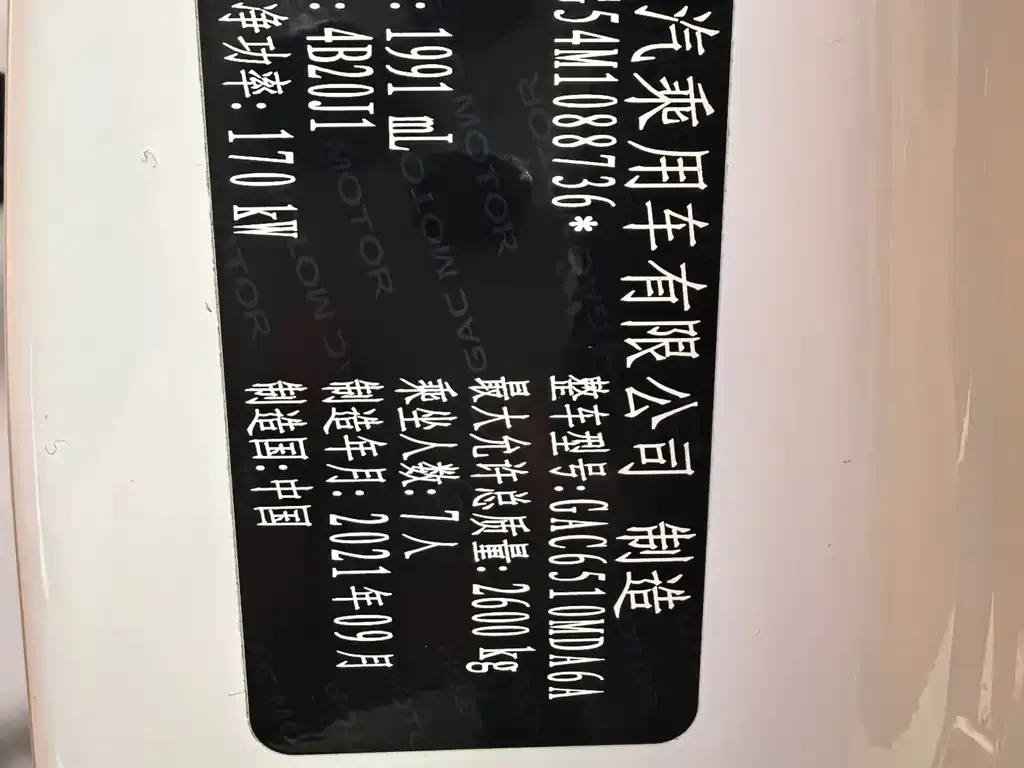 汽乘用车有限公司 制造
54M108736* 整车型号:GAC6510MDA6A
最大允许总质量:2600kg
: 1991 mL 乘坐人数:7人
: 4B20J1 制造年月:2021年09月
净功率: 170 kW 制造国:中国